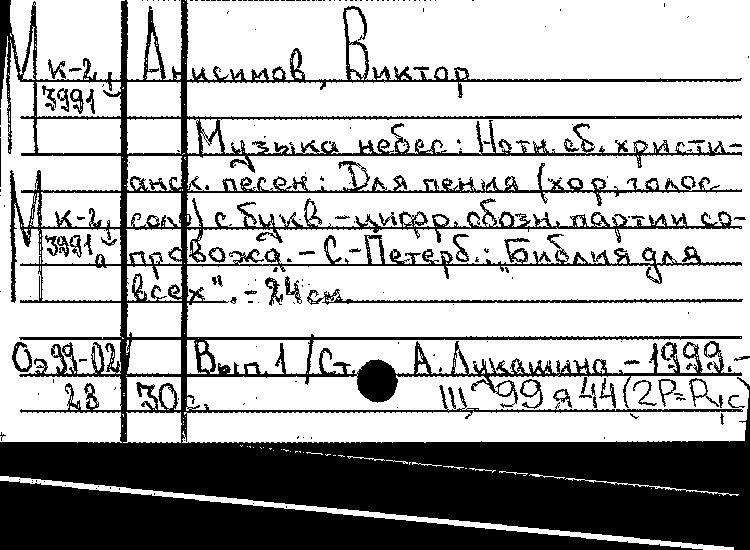 М к-2, Анисимов, Виктор
3991
Музыка небес: Нотн. сб. христи-
анск. песен: Для пения (хор, голос
М к-2, соло) с букв.-цифр. обозн. партии со-
3991а провожд. – С.-Петерб.: „Библия для
всех". – 24 см.
Оэ 99-02/ Вып. 1 / Ст. А. Лукашина. – 1999. –
28 30 с. Ш 99 я 44 (2Р=Р